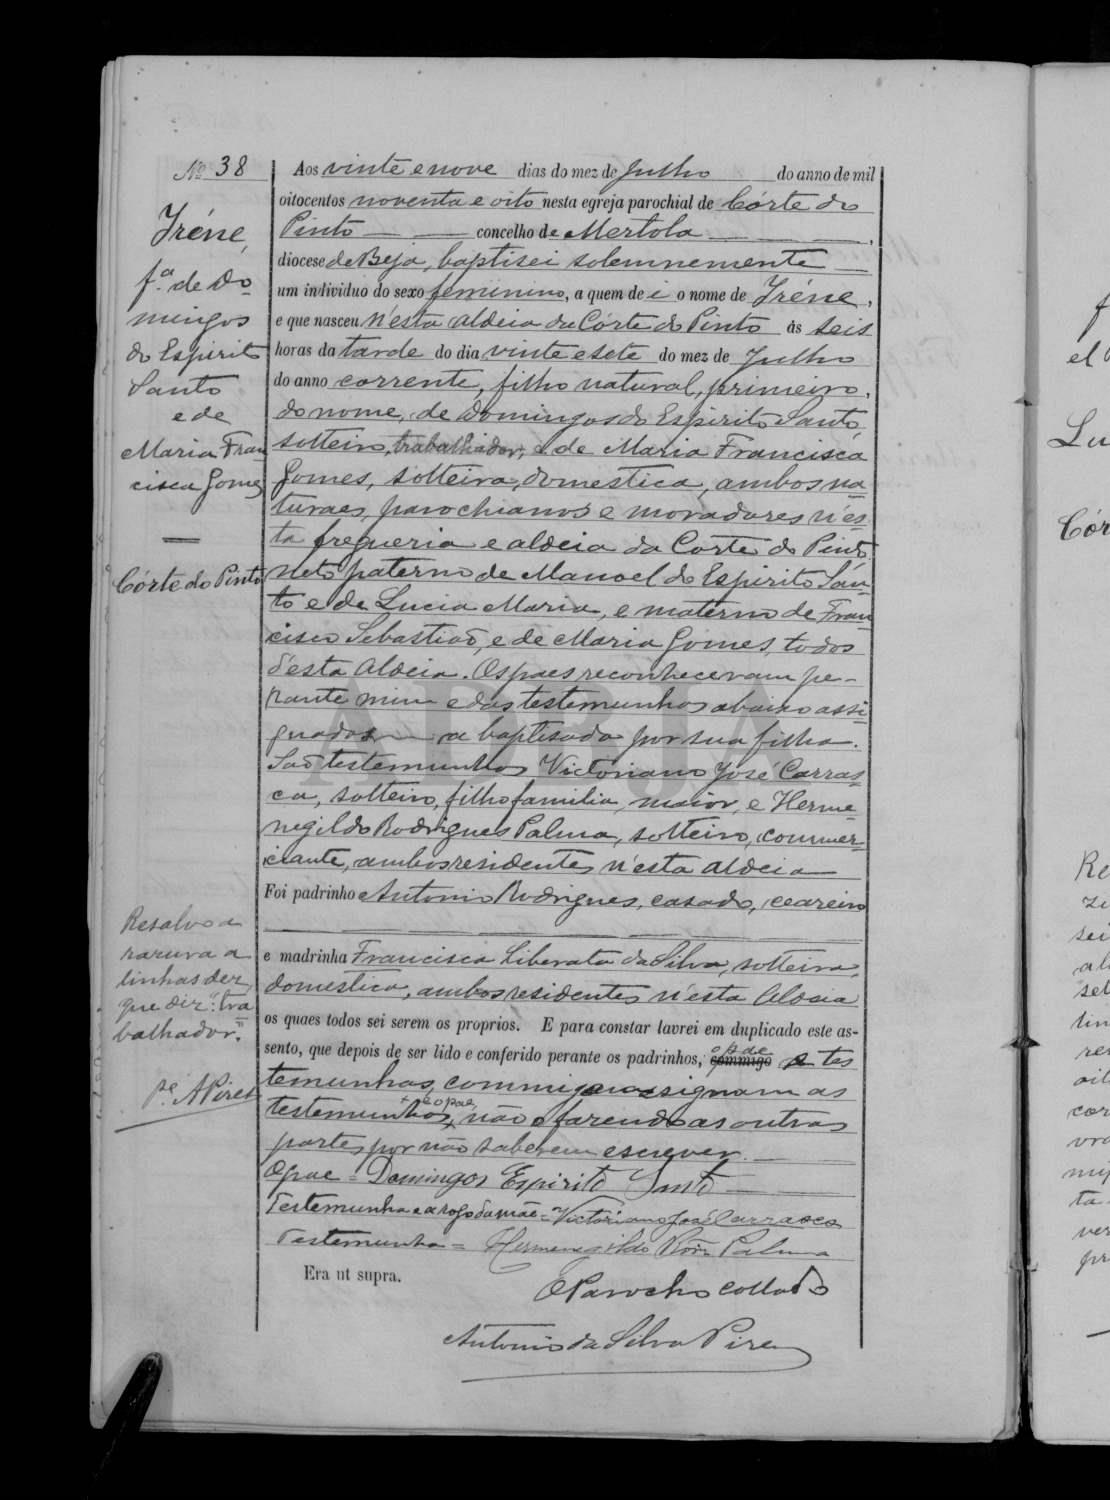 Nº 38
Iréne,
f.ª de Do-
mingos
do Espirito
Santo
e de
Maria Fran
cisca Gomes
Côrte do Pinto
Aos vinte e nove dias do mez de Julho do anno de mil
oitocentos noventa e oito nesta egreja parochial de Côrte do
Pinto concelho de Mertola,
diocese de Beja, baptisei solemnemente
um individuo do sexo feminino, a quem dei o nome de Iréne,
e que nasceu n'esta aldeia da Côrte do Pinto ás seis
horas da tarde do dia vinte e sete do mez de Julho
do anno corrente, filho natural, primeiro,
do nome, de Domingos do Espirito Santo
solteiro, trabalhador, e de Maria Francisca
Gomes, solteira, domestica, ambos na-
turaes, parochianos e moradores n'es-
ta freguezia e aldeia da Corte do Pinto
Neto paterno de Manoel do Espirito San-
to e de Lucia Maria, e materno de Fran-
cisco Sebastião, e de Maria Gomes, todos
d'esta Aldeia. Os paes reconheceram pe-
rante mim e das testemunhas abaixo assi-
gnados a baptisada por sua filha.
São testemunhas Victoriano José Carras-
co, solteiro, filho familia, maior, e Herme-
negildo Rodrigues Palma, solteiro, commer-
ciante, ambos residentes n'esta Aldeia
Foi padrinho Antonio Rodrigues, casado, ceareiro
e madrinha Francisca Liberata da Silva, solteira,
domestica, ambos residentes n'esta Aldeia
os quaes todos sei serem os proprios. E para constar lavrei em duplicado este as-
sento, que depois de ser lido e conferido perante os padrinhos, commigo e tes
temunhas, commigo assignam as
testemunhas, e o pae, não o fazendo as outras
partes por não saberem escrever.
O pae = Domingos Espirito Santo
Testemunha e a rogo da mãe = Victoriano José Carrasco
Testemunha = Hermenegildo Roiz Palma
Era ut supra.
O Parocho collado
Antonio da Silva Pires
Resalvo a
rasura a
linhas dez
que diz: "tra
balhador".
P.e A Pires
ADBJA
el
Lu
Cór